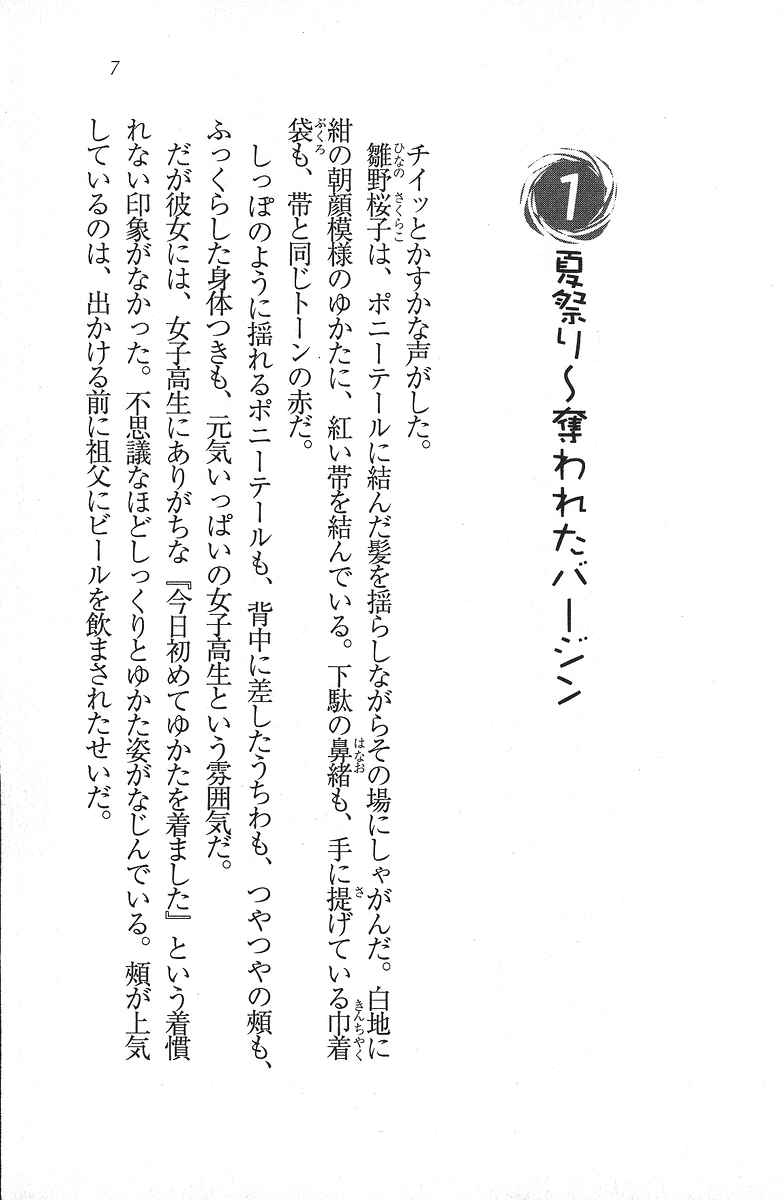 7
1 夏祭り～奪われたバージン
チイッとかすかな声がした。
雛野桜子は、ポニーテールに結んだ髪を揺らしながらその場にしゃがんだ。白地に
紺の朝顔模様のゆかたに、紅い帯を結んでいる。下駄の鼻緒も、手に提げている巾着
袋も、帯と同じトーンの赤だ。
しっぽのように揺れるポニーテールも、背中に差したうちわも、つやつやの頰も、
ふっくらした身体つきも、元気いっぱいの女子高生という雰囲気だ。
だが彼女には、女子高生にありがちな『今日初めてゆかたを着ました』という着慣
れない印象がなかった。不思議なほどしっくりとゆかた姿がなじんでいる。頰が上気
しているのは、出かける前に祖父にビールを飲まされたせいだ。